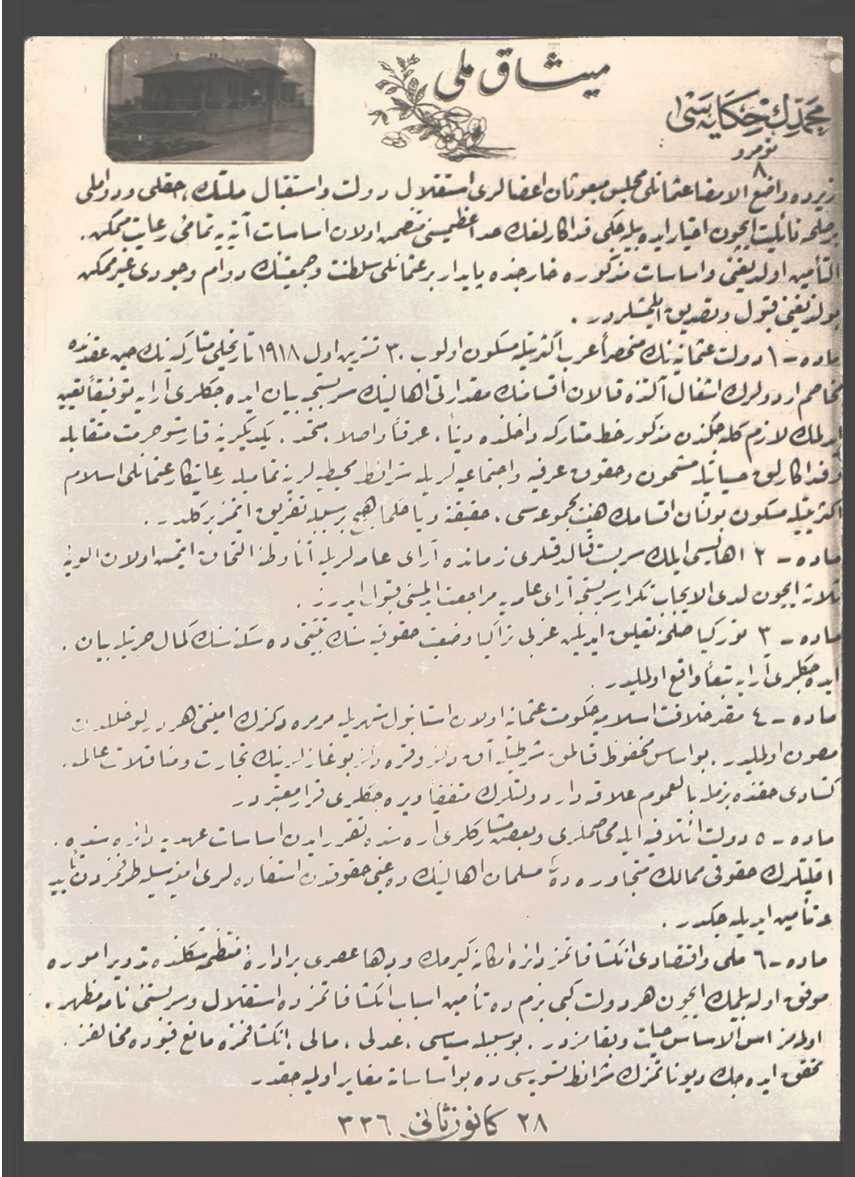 ميثاق ملى
محمدك حكايه سى
نومرو
٨
زيرده واضع الامضا عثمانلى مجلس مبعوثان اعضالرى استقلال دولت و استقبال ملتك، حقلى و دواملى
بر صلحه نائليت ايچون اختيار ايده بيله جكى فداكارلغك حد اعظميسنى متضمن اولان اساسات آتيه يه تمامئ رعايت ممكن .
التأمين اولديغنى و اساسات مذكوره خارجنده پايدار بر عثمانلى سلطنت و جمعيتنك دوام وجودى غير ممكن
بولنديغنى قبول و تصديق ايلمشلردر .
ماده – ١ دولت عثمانيه نك منحصراً عرب اكثريتيله مسكون اولوب ٣٠ تشرين اول ١٩١٨ تاريخلى متاركه نك حين عقدنده
مخاصم اردولرك اشغالى آلتنده قالان اقسامنك مقدراتى اهالينك سربستجه بيان ايده جكلرى آرايه توفيقاً تعيين
ايدلمك لازم كله جكندن مذكور خط متاركه داخلنده ديناً، عرقاً و اصلاً، متحد . يكديكرينه قارشو حرمت متقابله
و فداكارلق حسياتيله مشحون و حقوق عرقيه و اجتماعيه لريله شرائط محيطيه لرينه تماميله رعايتكار عثمانلى اسلام
اكثريتيله مسكون بولنان اقسامك هيئت مجموعه سى ، حقيقة ويا حكماً هيچ بر سببله تفريق ايتمز بر كلدر .
ماده – ٢ اهاليسى ايلك سربست قالدقلرى زمانده آراى عامه لريله آنا وطنه التحاق ايتمش اولان الويهٔ
ثلاثه ايچون لدى الايجاب تكرار سربستجه آراى عامه يه مراجعت ايدلمسنى قبول ايدرز .
ماده – ٣ توركيا صلحنه تعليق ايديلن غربى تراكيا وضعيت حقوقيه سنك تثبيتى ده سكنه سنك كمال حريتله بيان .
ايده جكلرى آرايه تبعاً واقع اولمليدر .
ماده – ٤ مقر خلافت اسلاميه و حكومت عثمانيه اولان استانبول شهريله مرمره دكزينك امنيتى هر درلو خللدن
مصون اولمليدر . بو اساس محفوظ قالمق شرطيله آق دكز و قره دكز بوغازلرينك تجارت و مناقلات عالمه .
كشادى حقنده بزمله بالعموم علاقه دار دولتلرك متفقاً ويره جكلرى قرار معتبردر
ماده – ٥ دول ائتلافيه ايله مخاصملرى و بعض مشاركلرى آره سنده تقرر ايدن اساسات عهديه دائره سنده .
اقليتلرك حقوقى ممالك متجاوره ده كى مسلمان اهالينك ده عين حقوقدن استفاده لرى امنيه سيله طرفمزدن تأييد
و تأمين ايديله جكدر .
ماده – ٦ ملى و اقتصادى انكشافاتمز دائرهٔ امكانه كيرمك و دها عصرى بر ادارهٔ منتظمه شكلنده تدوير اموره
موفق اوله بيلمك ايچون هر دولت كبى بزم ده تأمين اسباب انكشافاتمزده استقلال و سربستئ تامه مظهر .
اولمامز اس الاساس حيات و بقامزدر . بو سببله سياسى ، عدلى ، مالى ، انكشافمزه مانع قيوده مخالفز .
تحقق ايده جك ديوناتمزك شرائط تسويه سى ده بو اساساته مغاير اولميه جقدر
٢٨ كانون ثانى ٣٣٦